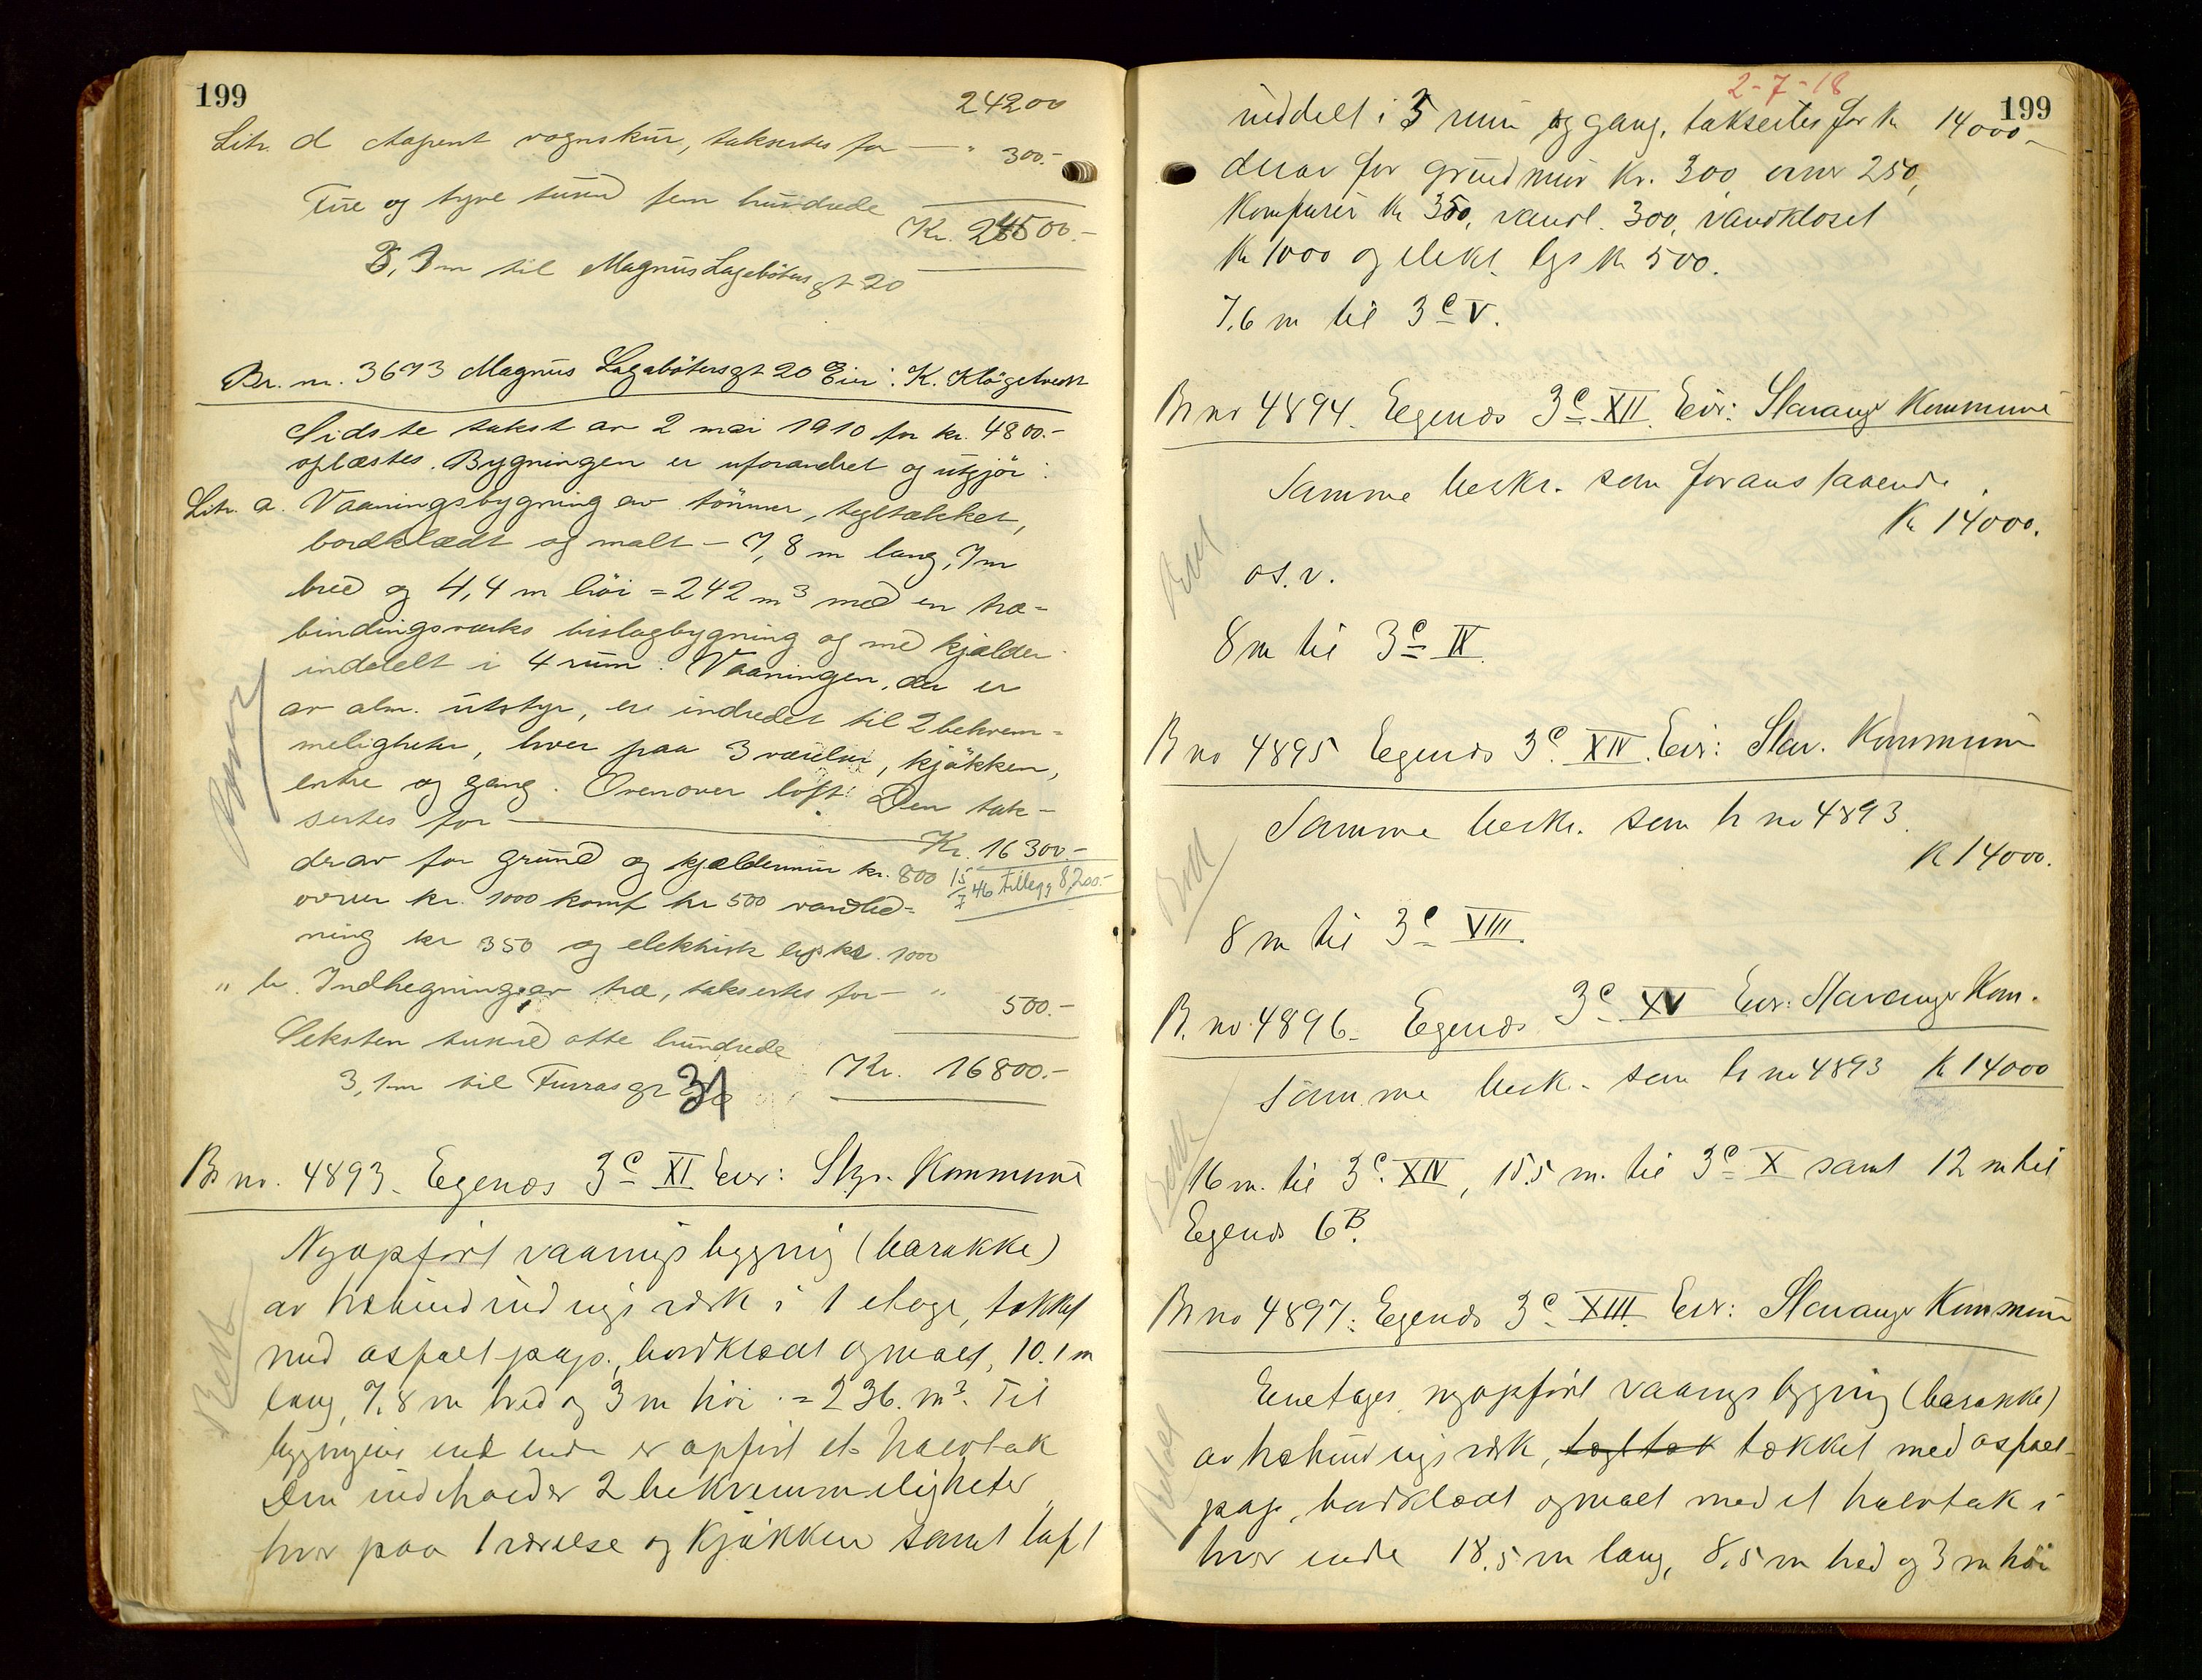 199
24200
Litr. d Aapent vognskur, taksertes for — " 300.-
Fire og tyve tusind fem hundrede Kr. 24500.-
3,1 m til Magnus Lagabøtersgt 20
Br. nr. 3673 Magnus Lagabøtersgt 20 Eier: K.
Sidste takst av 2 mai 1910 for kr. 4800.-
oplæstes. Bygningen er uforandret og utgjør:
Litr. a. Vaaningsbygning av tømmer, tegltækket,
bordklædt og malt – 7,8 m lang, 7 m
bred og 4,4 m høi = 242 m³ med en træ-
bindingsverks bislagbygning og med kjælder
inddelt i 4 rum. Vaaningen, der er
av alm. utstyr, er indredet til 2 bekvem-
meligheter, hver paa 3 værelser, kjøkken,
entre og gang. Ovenover loft. Den tak-
sertes for — Kr. 16300.-
derav for grund og kjældermur kr. 800
15/7 46 Tillegg 8200.-
ovner kr. 1000 komf. kr 500 vandled-
ning kr 350 og elektrisk lys kr. 1000
" b. Indhegninger av træ, taksertes for — " 500.-
Seksten tusind otte hundrede Kr. 16800.-
3,1 m til Furrasgt 31
Br no. 4893. Egenæs 3c XI Eier: Stgr. Kommune
Nyopført vaaningsbygning (barakke)
av træbindingsverk i 1 etage, tækket
med asfalt pap., bordklædt og malt, 10.1 m
lang, 7.8 m bred og 3 m høi = 236. m³. Til
bygningens ene ende er opført et halvtak
Den indeholder 2 bekvemmeligheter
hver paa 1 værelse og kjøkken samt loft
2-7-18
199
inddelt i 3 rum og gang, taksertes for kr 14000.-
derav for grundmur kr. 300, ovner 250,
komfurer kr 350, vandl. 300, vandkloset
kr 1000 og elekt. lys kr 500.
7,6 m til 3c V.
Br no 4894. Egenæs 3c XII. Eier: Stavanger Kommune
Samme beskr. som foranstaaende.
Kr 14000.
o.s.v.
8 m til 3c IX.
Br no 4895 Egenæs 3c XIV. Eier: Stav. Kommune
Samme beskr. som br no 4893.
Kr 14000.
8 m til 3c VIII.
Br. no. 4896. Egenæs 3c XV Eier: Stavanger Kom.
Samme besk. som br no 4893 Kr 14000
16 m. til 3c XIV, 15.5 m. til 3c X samt 12 m til
Egenæs 6B.
Br no 4897. Egenæs 3c XIII. Eier: Stavanger Kommune
Enetages nyopført vaaningsbygning (barakke)
av træbindingsverk, tegltæk tækket med asfalt-
pap, bordklædt og malt med et halvtak i
hver ende 18.5 m lang, 8.5 m bred og 3 m høi